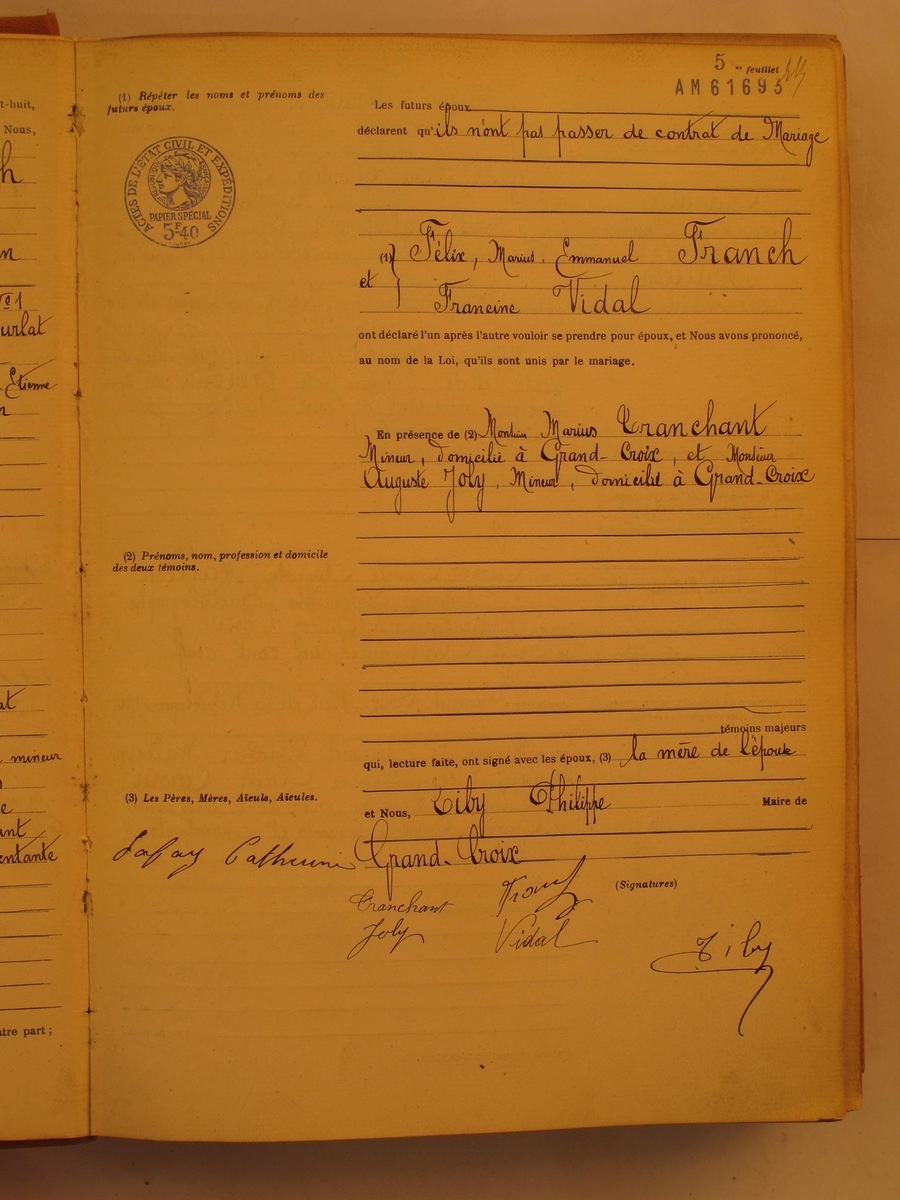 t-huit,
Nous,
h
n
urlat
Etienne
at
mineur
e
ant
entante
tre part ;
5 me feuillet
AM61693
(1) Répéter les noms et prénoms des
futurs époux.
ACTES DE L'ÉTAT CIVIL ET EXPÉDITIONS
PAPIER SPÉCIAL
5F40
Les futurs époux
déclarent qu'ils n'ont pas passer de contrat de Mariage
(1) Félix, Marius, Emmanuel Franch
et
Francine Vidal
ont déclaré l'un après l'autre vouloir se prendre pour époux, et Nous avons prononcé,
au nom de la Loi, qu'ils sont unis par le mariage.
En présence de (2) Monsieur Marius Tranchant
Mineur, domicilié à Grand-Croix, et Monsieur
Auguste Joly, Mineur, domicilié à Grand-Croix
(2) Prénoms, nom, profession et domicile
des deux témoins.
témoins majeurs
qui, lecture faite, ont signé avec les époux, (3) la mère de l'épouse
(3) Les Pères, Mères, Aïeuls, Aïeules.
et Nous, Tiby Philippe Maire de
Grand-Croix
Lafay Catherine
(Signatures)
Tranchant
Franch
Joly
Vidal
Tiby